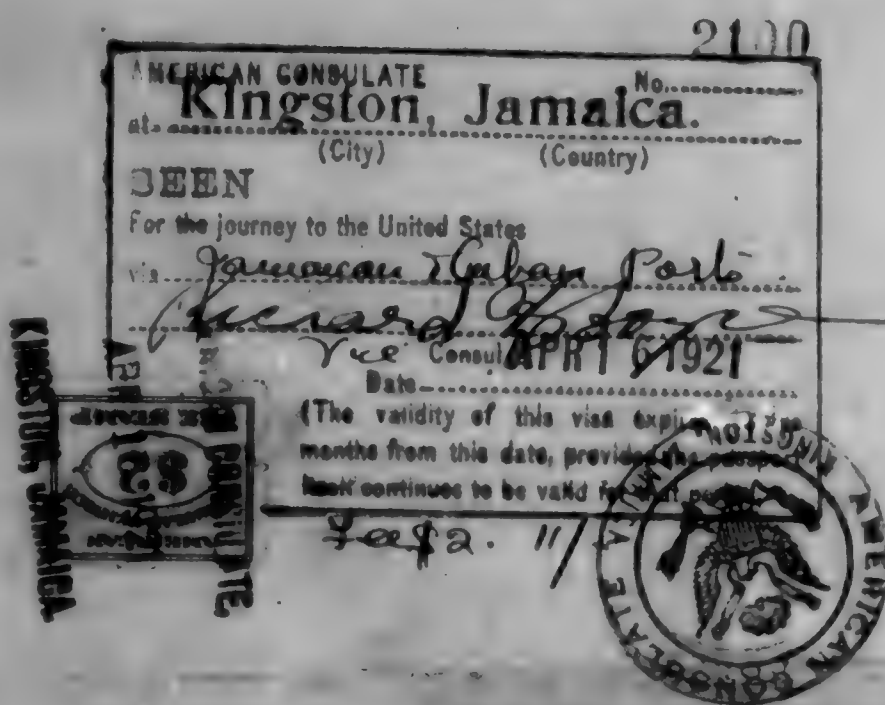 2100
AMERICAN CONSULATE No.
at Kingston, Jamaica.
(City) (Country)
SEEN
For the journey to the United States
via Jamaican & Cuban Ports
Vice Consul
Date APR 16 1921
(The validity of this visa expires
months from this date, provided the passport
itself continues to be valid for that
Fee $2.
KINGSTON, JAMAICA
APR
CONSULATE
AMERICAN CONSULATE KINGSTON, JAMAICA